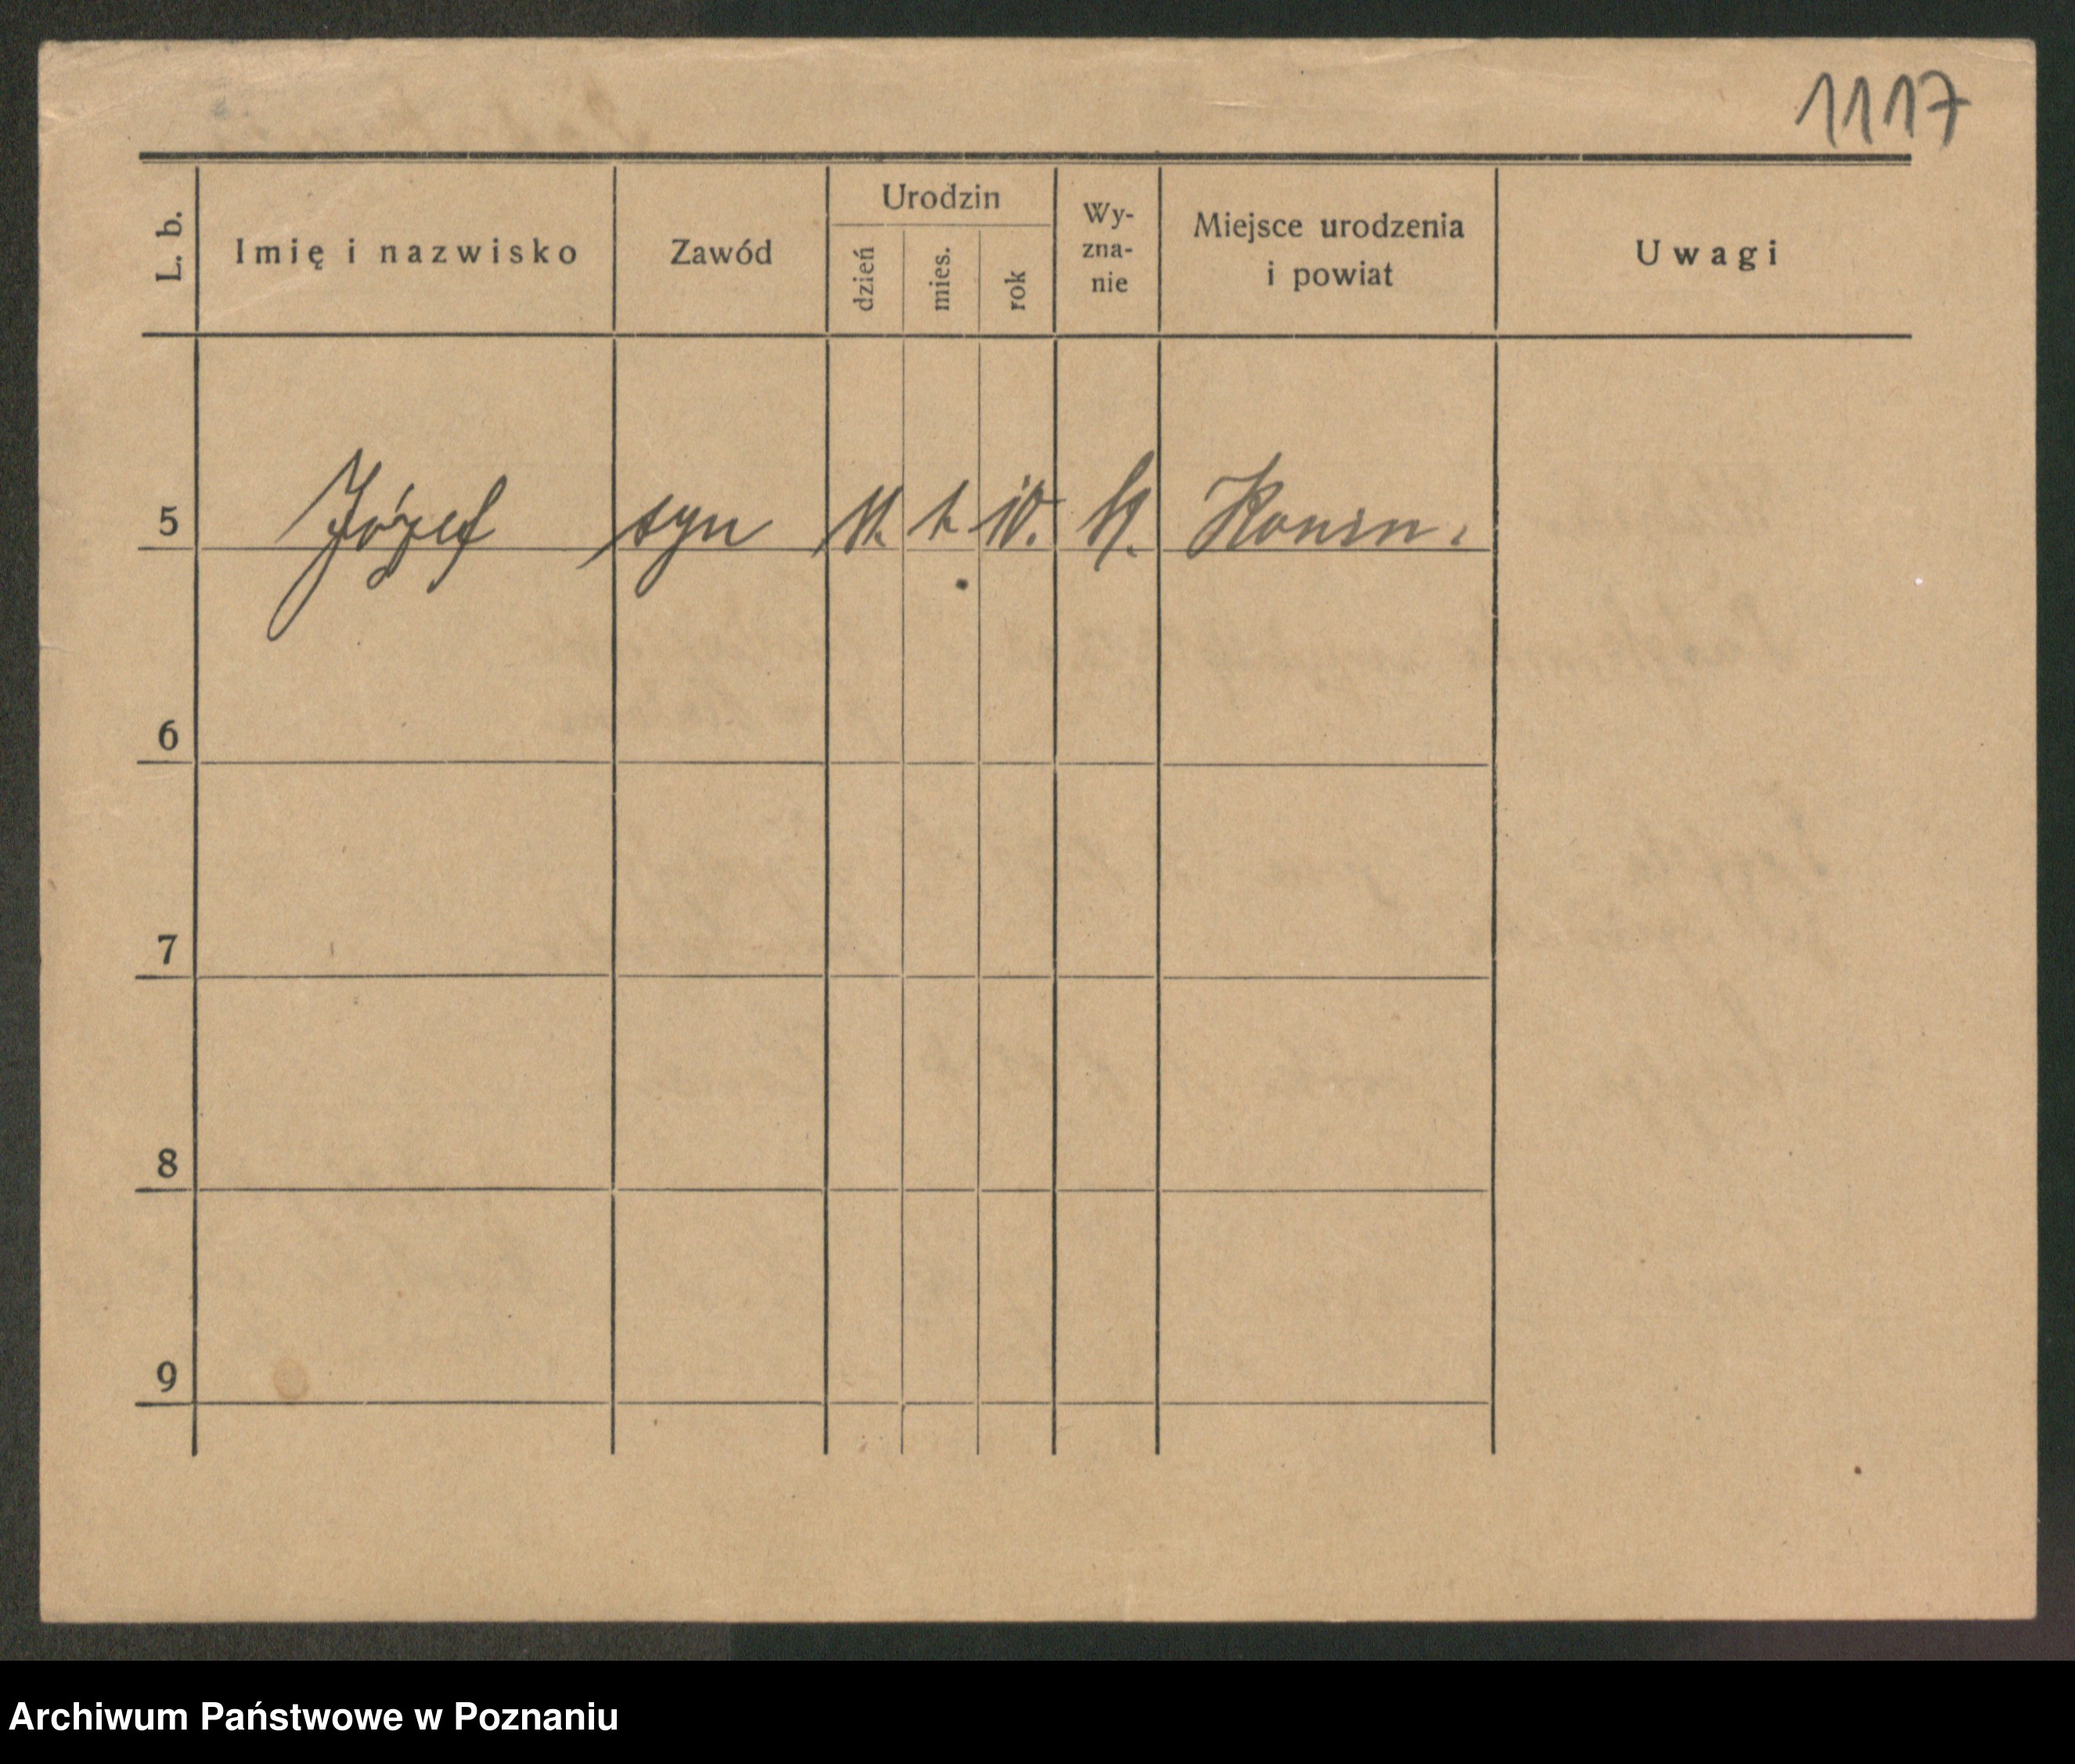 1117
L. b.
Imię i nazwisko
Zawód
Urodzin
dzień
mies.
rok
Wy-
zna-
nie
Miejsce urodzenia
i powiat
Uwagi
5 Józef syn 11. Konin.
6
7
8
9
Archiwum Państwowe w Poznaniu